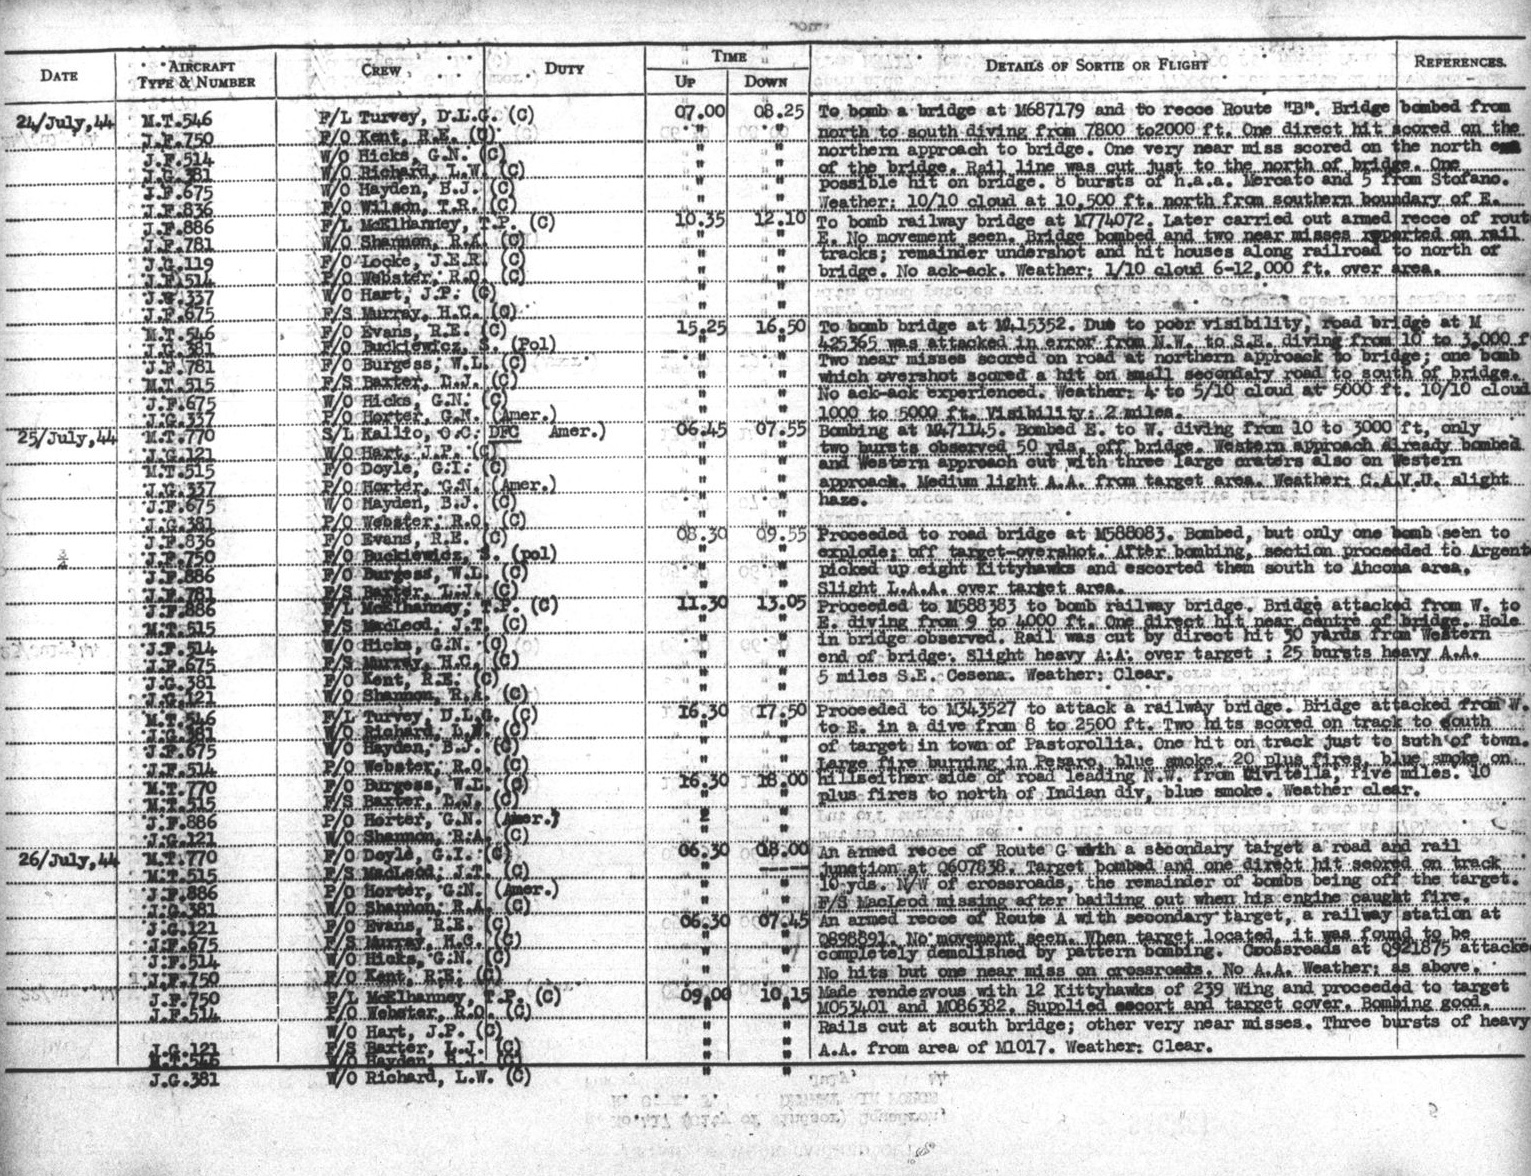 DATE AIRCRAFT TYPE & NUMBER CREW DUTY TIME UP DOWN DETAILS OF SORTIE OR FLIGHT REFERENCES.
24/July,44 M.T.546 F/L Turvey, D.L.G. (C) 07.00 08.25 To bomb a bridge at M687179 and to recce Route "B". Bridge bombed from
J.F.750 F/O Kent, R.E. (C) " " north to south diving from 7800 to2000 ft. One direct hit scored on the
J.F.514 W/O Hicks, G.N. (C) " " northern approach to bridge. One very near miss scored on the north
J.G.381 W/O Richard, L.W. (C) " " of the bridge. Rail line was cut just to the north of bridge. One
J.F.675 W/O Hayden, B.J. (C) " " possible hit on bridge. 8 bursts of h.a.a. Mercato and 5 from Stofano.
J.F.836 F/O Wilson, T.R. (C) " " Weather: 10/10 cloud at 10,500 ft. north from southern boundary of E.
J.F.886 F/L McElhanney, T.P. (C) 10.35 12.10 To bomb railway bridge at M774072. Later carried out armed recce of rout
J.F.781 W/O Shannon, R.A. (C) " " E. No movement seen. Bridge bombed and two near misses reported on rail
J.G.119 F/O Locke, J.E.R. (C) " " tracks; remainder undershot and hit houses along railroad to north of
J.F.514 P/O Webster, R.O. (C) " " bridge. No ack-ack. Weather: 1/10 cloud 6-12,000 ft. over area.
J.W.337 W/O Hart, J.P. (C) " "
J.F.675 F/S Murray, H.C. (C) " "
M.T.546 F/O Evans, R.E. (C) 15.25 16.50 To bomb bridge at M415352. Due to poor visibility, road bridge at M
J.G.381 F/O Buckiewicz, S. (Pol) " " 425365 was attacked in error from N.W. to S.E. diving from 10 to 3,000 f
J.F.781 F/O Burgess, W.L. (C) " " Two near misses scored on road at northern approack to bridge; one bomb
M.T.515 F/S Baxter, L.J. (C) " " which overshot scored a hit on small secondary road to south of bridge.
J.F.675 W/O Hicks, G.N. (C) " " No ack-ack experienced. Weather: 4 to 5/10 cloud at 5000 ft. 10/10 cloud
J.G.337 P/O Horter, G.N. (Amer.) " " 1000 to 5000 ft. Visibility: 2 miles.
25/July,44 M.T.770 S/L Kallio, O.C. DFC Amer.) 06.45 07.55 Bombing at M471145. Bombed E. to W. diving from 10 to 3000 ft, only
J.G.121 W/O Hart, J.P. (C) " " two bursts observed 50 yds. off bridge. Western approach already bombed
M.T.515 F/O Doyle, G.I. (C) " " and Western approach cut with three large craters also on Western
J.G.337 P/O Horter, G.N. (Amer.) " " approach. Medium light A.A. from target area. Weather: C.A.V.U. slight
J.F.675 W/O Hayden, B.J. (C) " " haze.
J.G.381 P/O Webster, R.O. (C) " "
J.F.836 F/O Evans, R.E. (C) 08.30 09.55 Proceeded to road bridge at M588083. Bombed, but only one bomb seen to
J.F.750 F/O Buckiewicz, S. (pol) " " explode; off target-overshot. After bombing, section proceeded to Argent
J.F.886 F/O Burgess, W.L. (C) " " picked up eight Kittyhawks and escorted them south to Ahcona area.
J.F.781 F/S Baxter, L.J. (C) " " Slight L.A.A. over target area.
J.F.886 F/L McElhanney, T.P. (C) 11.30 13.05 Proceeded to M588383 to bomb railway bridge. Bridge attacked from W. to
M.T.515 F/S MacLeod, J.T. (C) " " E. diving from 9 to 4000 ft. One direct hit near centre of bridge. Hole
J.F.514 W/O Hicks, G.N. (C) " " in bridge observed. Rail was cut by direct hit 30 yards from Western
J.F.675 F/S Murray, H.C. (C) " " end of bridge. Slight heavy A.A. over target ; 25 bursts heavy A.A.
J.G.381 F/O Kent, R.E. (C) " " 5 miles S.E. Cesena. Weather: Clear.
J.G.121 W/O Shannon, R.A. (C) " "
M.T.546 F/L Turvey, D.L.G. (C) 16.30 17.50 Proceeded to M343527 to attack a railway bridge. Bridge attacked from W.
J.G.381 W/O Richard, L.W. (C) " " to E. in a dive from 8 to 2500 ft. Two hits scored on track to south
J.F.675 W/O Hayden, B.J. (C) " " of target in town of Pastorollia. One hit on track just to suth of town.
J.F.514 P/O Webster, R.O. (C) " " Large fire burning in Pesaro, blue smoke. 20 plus fires, blue smoke on
M.T.770 F/O Burgess, W.L. (C) 16.30 18.00 hillseither side of road leading N.W. from Civitella, five miles. 10
M.T.515 F/S Baxter, L.J. (C) " " plus fires to north of Indian div, blue smoke. Weather clear.
J.F.886 P/O Horter, G.N. (Amer.) 2 "
J.G.121 W/O Shannon, R.A. (C) " "
26/July,44 M.T.770 F/O Doyle, G.I. (C) 06.30 08.00 An armed recce of Route G with a secondary target a road and rail
M.T.515 F/S MacLeod, J.T. (C) " ----- junction at Q607838. Target bombed and one direct hit scored on track
J.F.886 P/O Horter, G.N. (Amer.) " " 10 yds. N/W of crossroads, the remainder of bombs being off the target.
J.G.381 W/O Shannon, R.A. (C) " " F/S MacLeod missing after bailing out when his engine caught fire.
J.G.121 F/O Evans, R.E. (C) 06.30 07.45 An armed recce of Route A with secondary target, a railway station at
J.F.675 F/S Murray, H.C. (C) " " Q898891. No movement seen. When target located, it was found to be
J.F.514 W/O Hicks, G.N. (C) " " completely demolished by pattern bombing. Crossroads at Q921875 attacke
J.F.750 F/O Kent, R.E. (C) " " No hits but one near miss on crossroads. No A.A. Weather: as above.
J.F.750 F/L McElhanney, T.P. (C) 09.00 10.15 Made rendezvous with 12 Kittyhawks of 239 Wing and proceeded to target
J.F.514 P/O Webster, R.O. (C) " " M053401 and M086382. Supplied escort and target cover. Bombing good.
W/O Hart, J.P. (C) " " Rails cut at south bridge; other very near misses. Three bursts of heavy
J.G.121 F/S Baxter, L.J. (C) " " A.A. from area of M1017. Weather: Clear.
M.T.546 W/O Hayden, B.J. (C) " "
J.G.381 W/O Richard, L.W. (C) " "